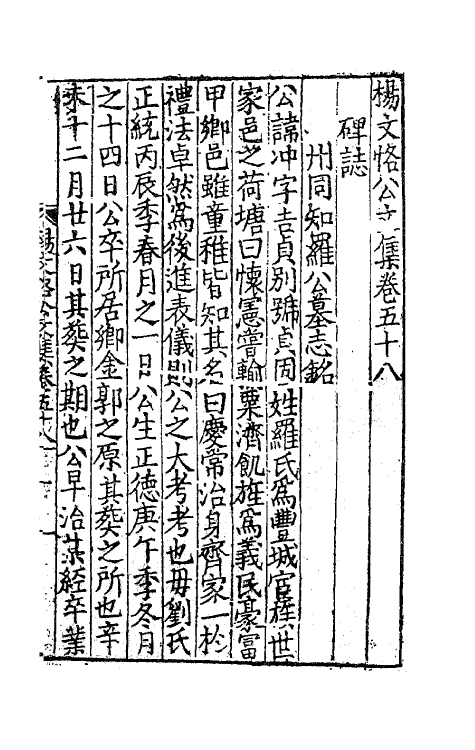 楊文恪公文集卷五十八
碑誌
州同知羅公墓志銘
公諱冲字吉貞別號貞固姓羅氏爲豐城官䅵世
家邑之荷塘曰懷憲嘗輸粟濟飢旌爲義民豪富
甲鄉邑雖童稚皆知其名曰慶常治身齊家一於
禮法卓然爲後進表儀則公之大考考也毋劉氏
正統丙辰季春月之一日公生正德庚午季冬月
之十四日公卒所居鄉金郭之原其葬之所也辛
未十二月廿六日其葬之期也公早治某經卒業